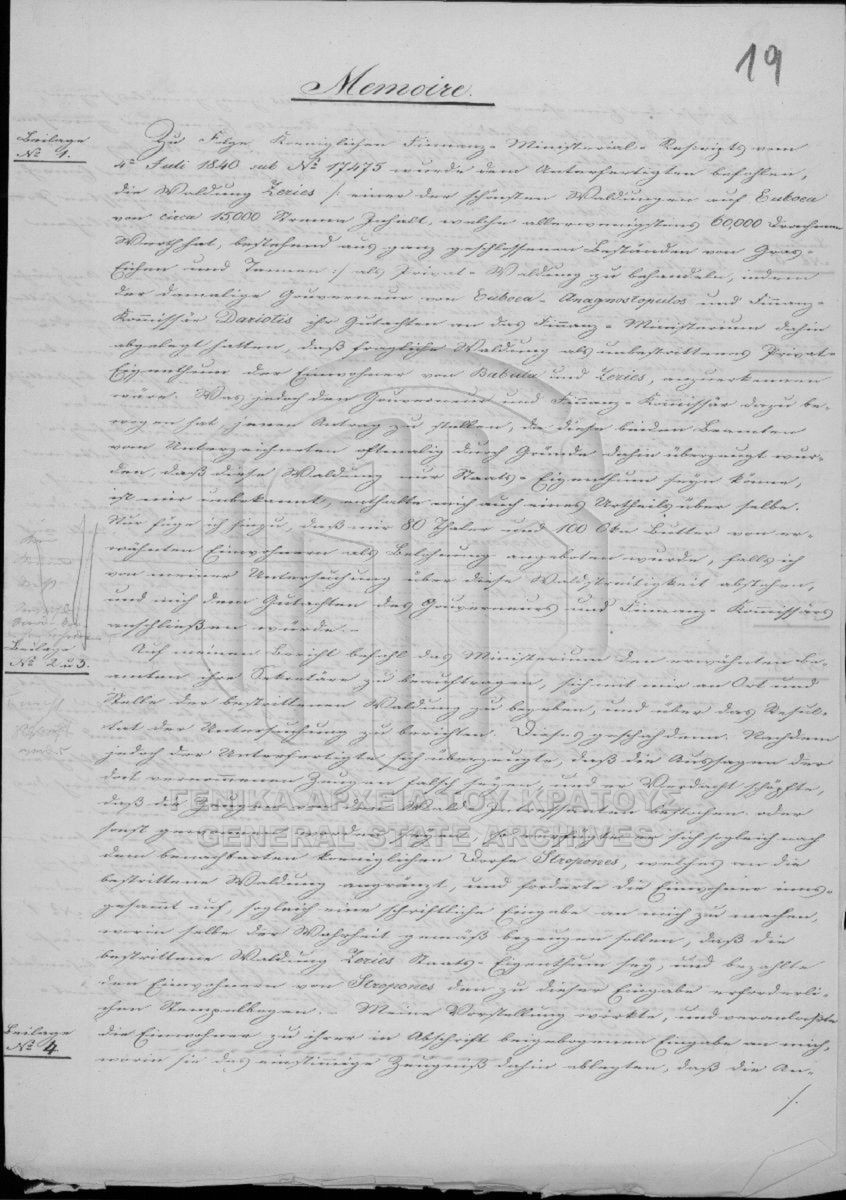 19
Memoire.
Beilage
Nº 1.
Zu Folge Koeniglichen Finnanz-Ministerial-Rescripts vom
4ᵗ Juli 1840 sub Nº 17475 wurde dem Unterfertigten befohlen,
die Waldung Zeries /: einer der schönsten Waldungen auf Euboea
von circa 15000 Stremen Inhalt, welche allerwenigstens 60,000 Drachmen
Werth hat, bestehend aus ganz geschlossenen Beständen von
Eichen und Tannen :/ als Privat-Waldung zu behandeln, indem
der damalige Gouverneur von Euboea-Anagnostopulos und Finnanz-
Kommissär Dariotis ihr Gutachten an das Finnanz-Ministerium dahin
abgelegt hatten, daß fragliche Waldung als unbestrittenes Privat-
Eigenthum der Einwohner von Babula und Zeries, anzuerkennen
wäre. Was jedoch den Gouverneur und Finnanz-Kommissär dazu be-
wogen hat, jenen Antrag zu stellen, da diese beiden Beamten
vom Unterzeichneten oftmalig durch Gründe dahin überzeugt wur-
den, daß diese Waldung nur Staats-Eigenthum seyn könne,
ist mir unbekannt, enthalte mich auch eines Urtheils über selbe.
Nur füge ich hinzu, daß mir 80 Thaler und 100 Oka Butter von er-
wähnten Einwohnern als Belohnung angeboten wurde, falls ich
von meiner Untersuchung über diese Waldstreitigkeit abstehen,
und mich dem Gutachten des Gouverneurs und Finnanz-Kommissärs
anschließen würde.-
Beilage
Nº 2 u 3.
Auf meinen Bericht befahl das Ministerium den erwähnten Be-
amten ihre Sekretäre zu beauftragen, sich mit mir an Ort und
Stelle der bestrittenen Waldung zu begeben, und über das Resul-
tat der Untersuchung zu berichten. Dieses geschah dann. Nachdem
jedoch der Unterfertigte sich überzeugte, daß die Aussagen der
dort vernommenen Zeugen falsch seyen, und er Verdacht schöpfte,
daß die Zeugen von den Interessenten bestochen oder
sonst gewonnen worden seyen, so verfügte er sich sogleich nach
dem benachbarten koeniglichen Dorfe Stropones, welches an die
bestrittene Waldung angränzt, und forderte die Einwohner ins-
gesammt auf, sogleich eine schriftliche Eingabe an mich zu machen,
worin selbe der Wahrheit gemäß bezeugen sollen, daß die
bestrittene Waldung Zeries Staats-Eigenthum sey, und bezahlte
den Einwohnern von Stropones den zu dieser Eingabe erforderli-
chen Stempelbogen.- Meine Vorstellung wirkte, und veranlaßte
Beilage
Nº 4.
die Einwohner zu ihrer in Abschrift beigebogenen Eingabe an mich,
worin sie das einstimmige Zeugniß dahin ablegten, daß die An-
/.
ΓΕΝΙΚΑ ΑΡΧΕΙΑ ΤΟΥ ΚΡΑΤΟΥΣ
GENERAL STATE ARCHIVES